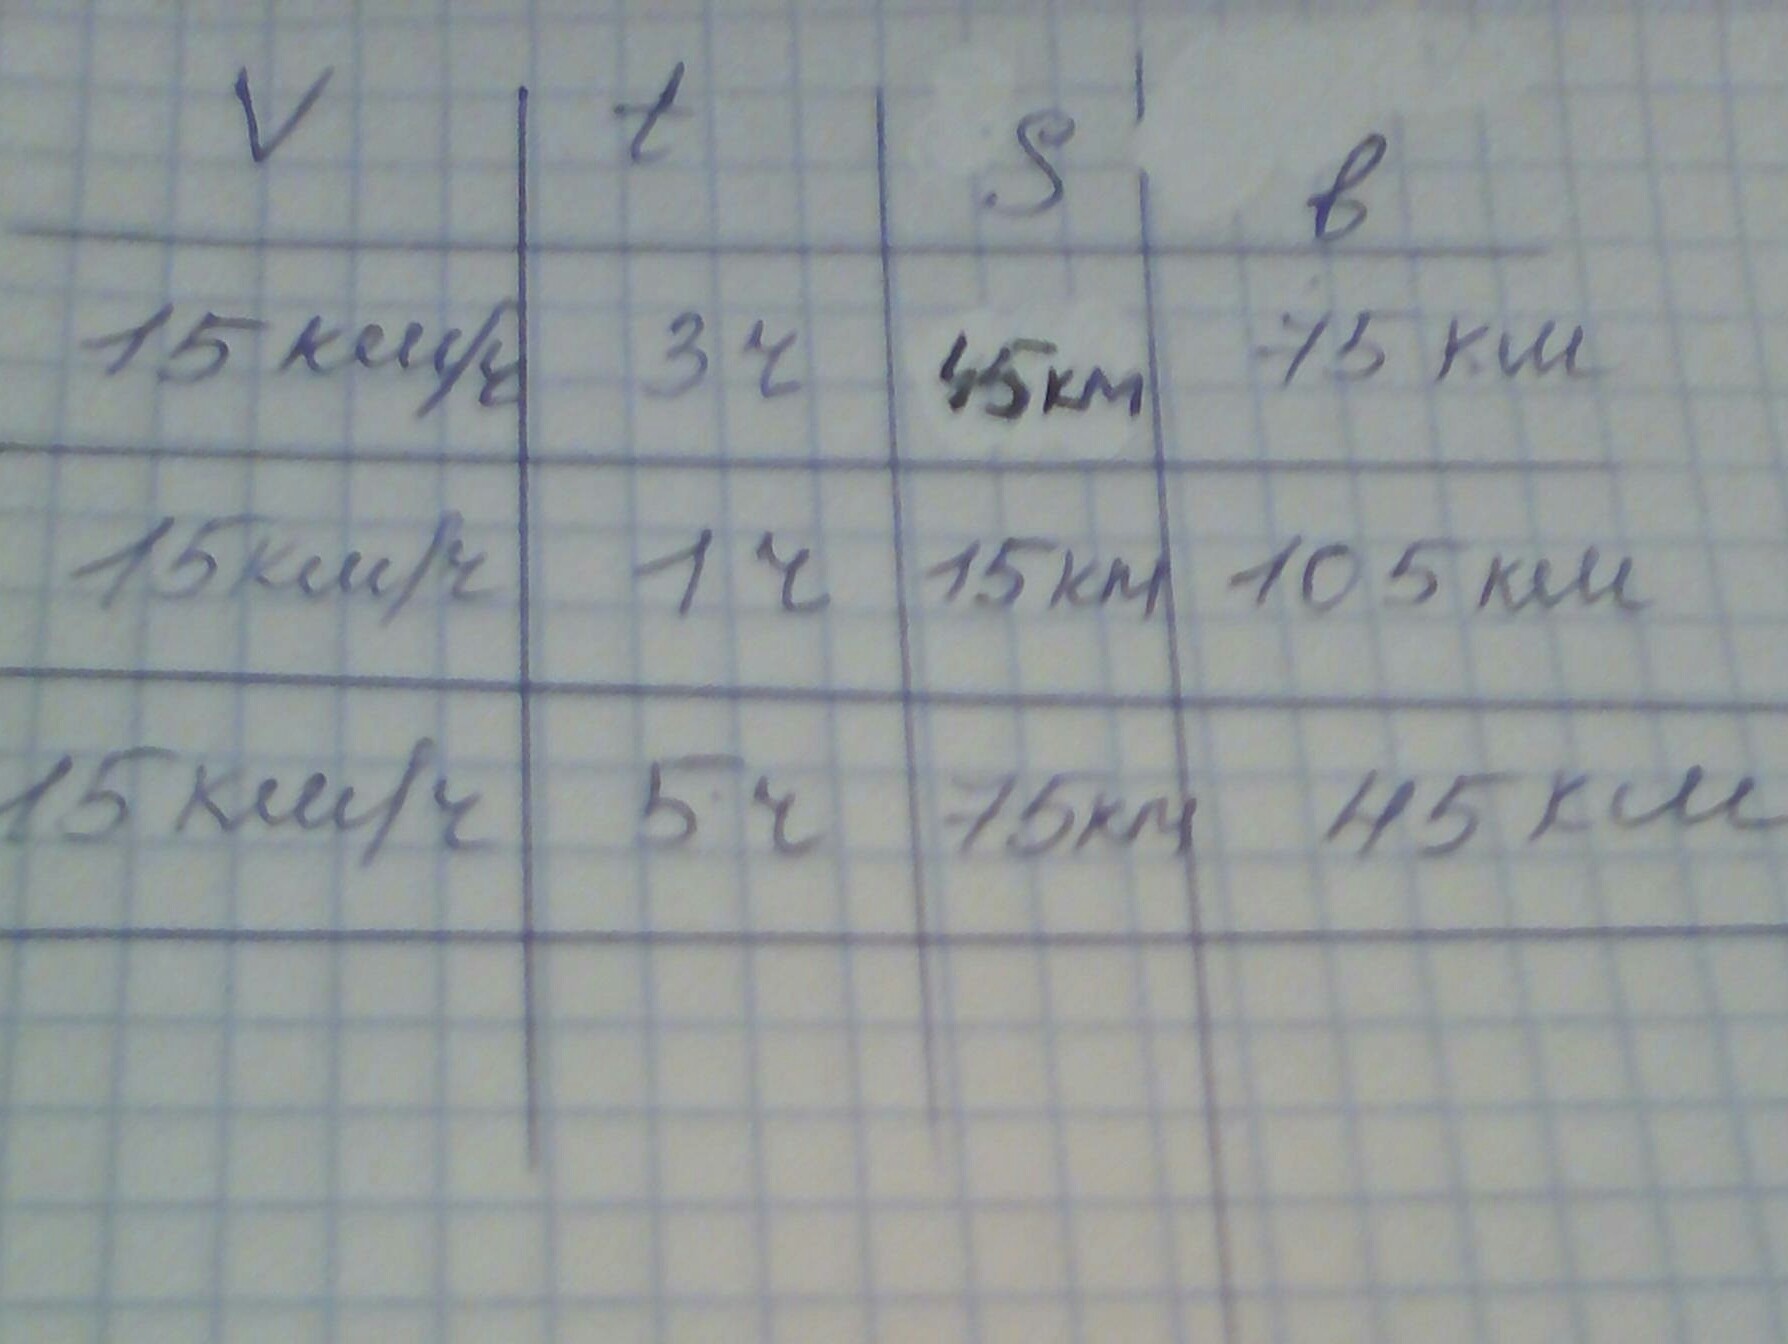 V t S в
15 км/ч 3 ч 45 км 75 км
15 км/ч 1 ч 15 км 105 км
15 км/ч 5 ч 75 км 45 км